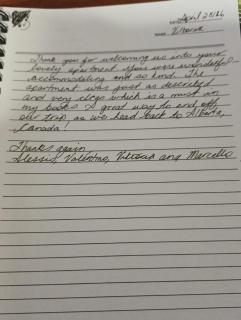 April 28/26
NAME Victoria
Thank you for welcoming us into your
lovely apartment. You were wonderful,
accommodating and so kind. The
apartment was just as described
and very clean which is a must in
my books. A great way to end off
our trip as we head back to Alberta,
Canada!
Thanks again
Alessia, Valentina, Victoria and Marcello